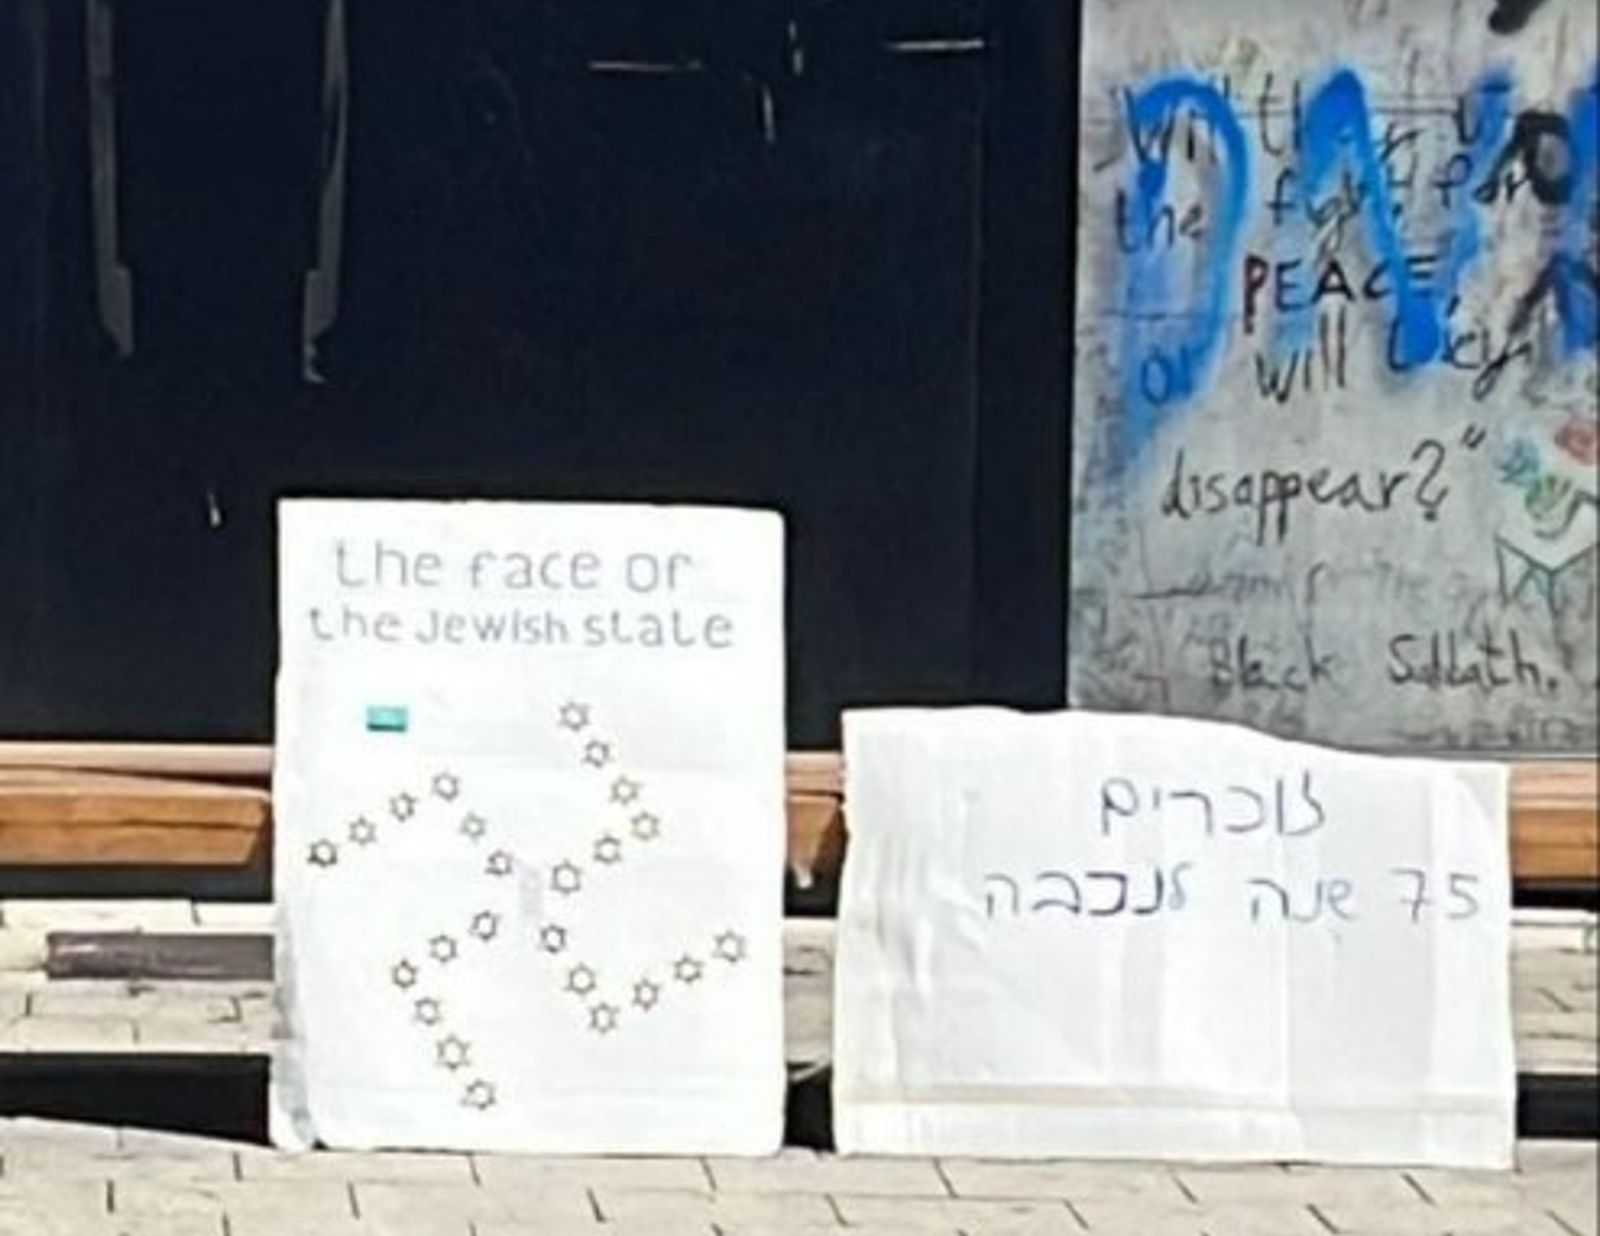 the face of
the Jewish state
זוכרים
75 שנה לנכבה
the fight for
PEACE,
or will they
disappear?"
Black Sabbath.